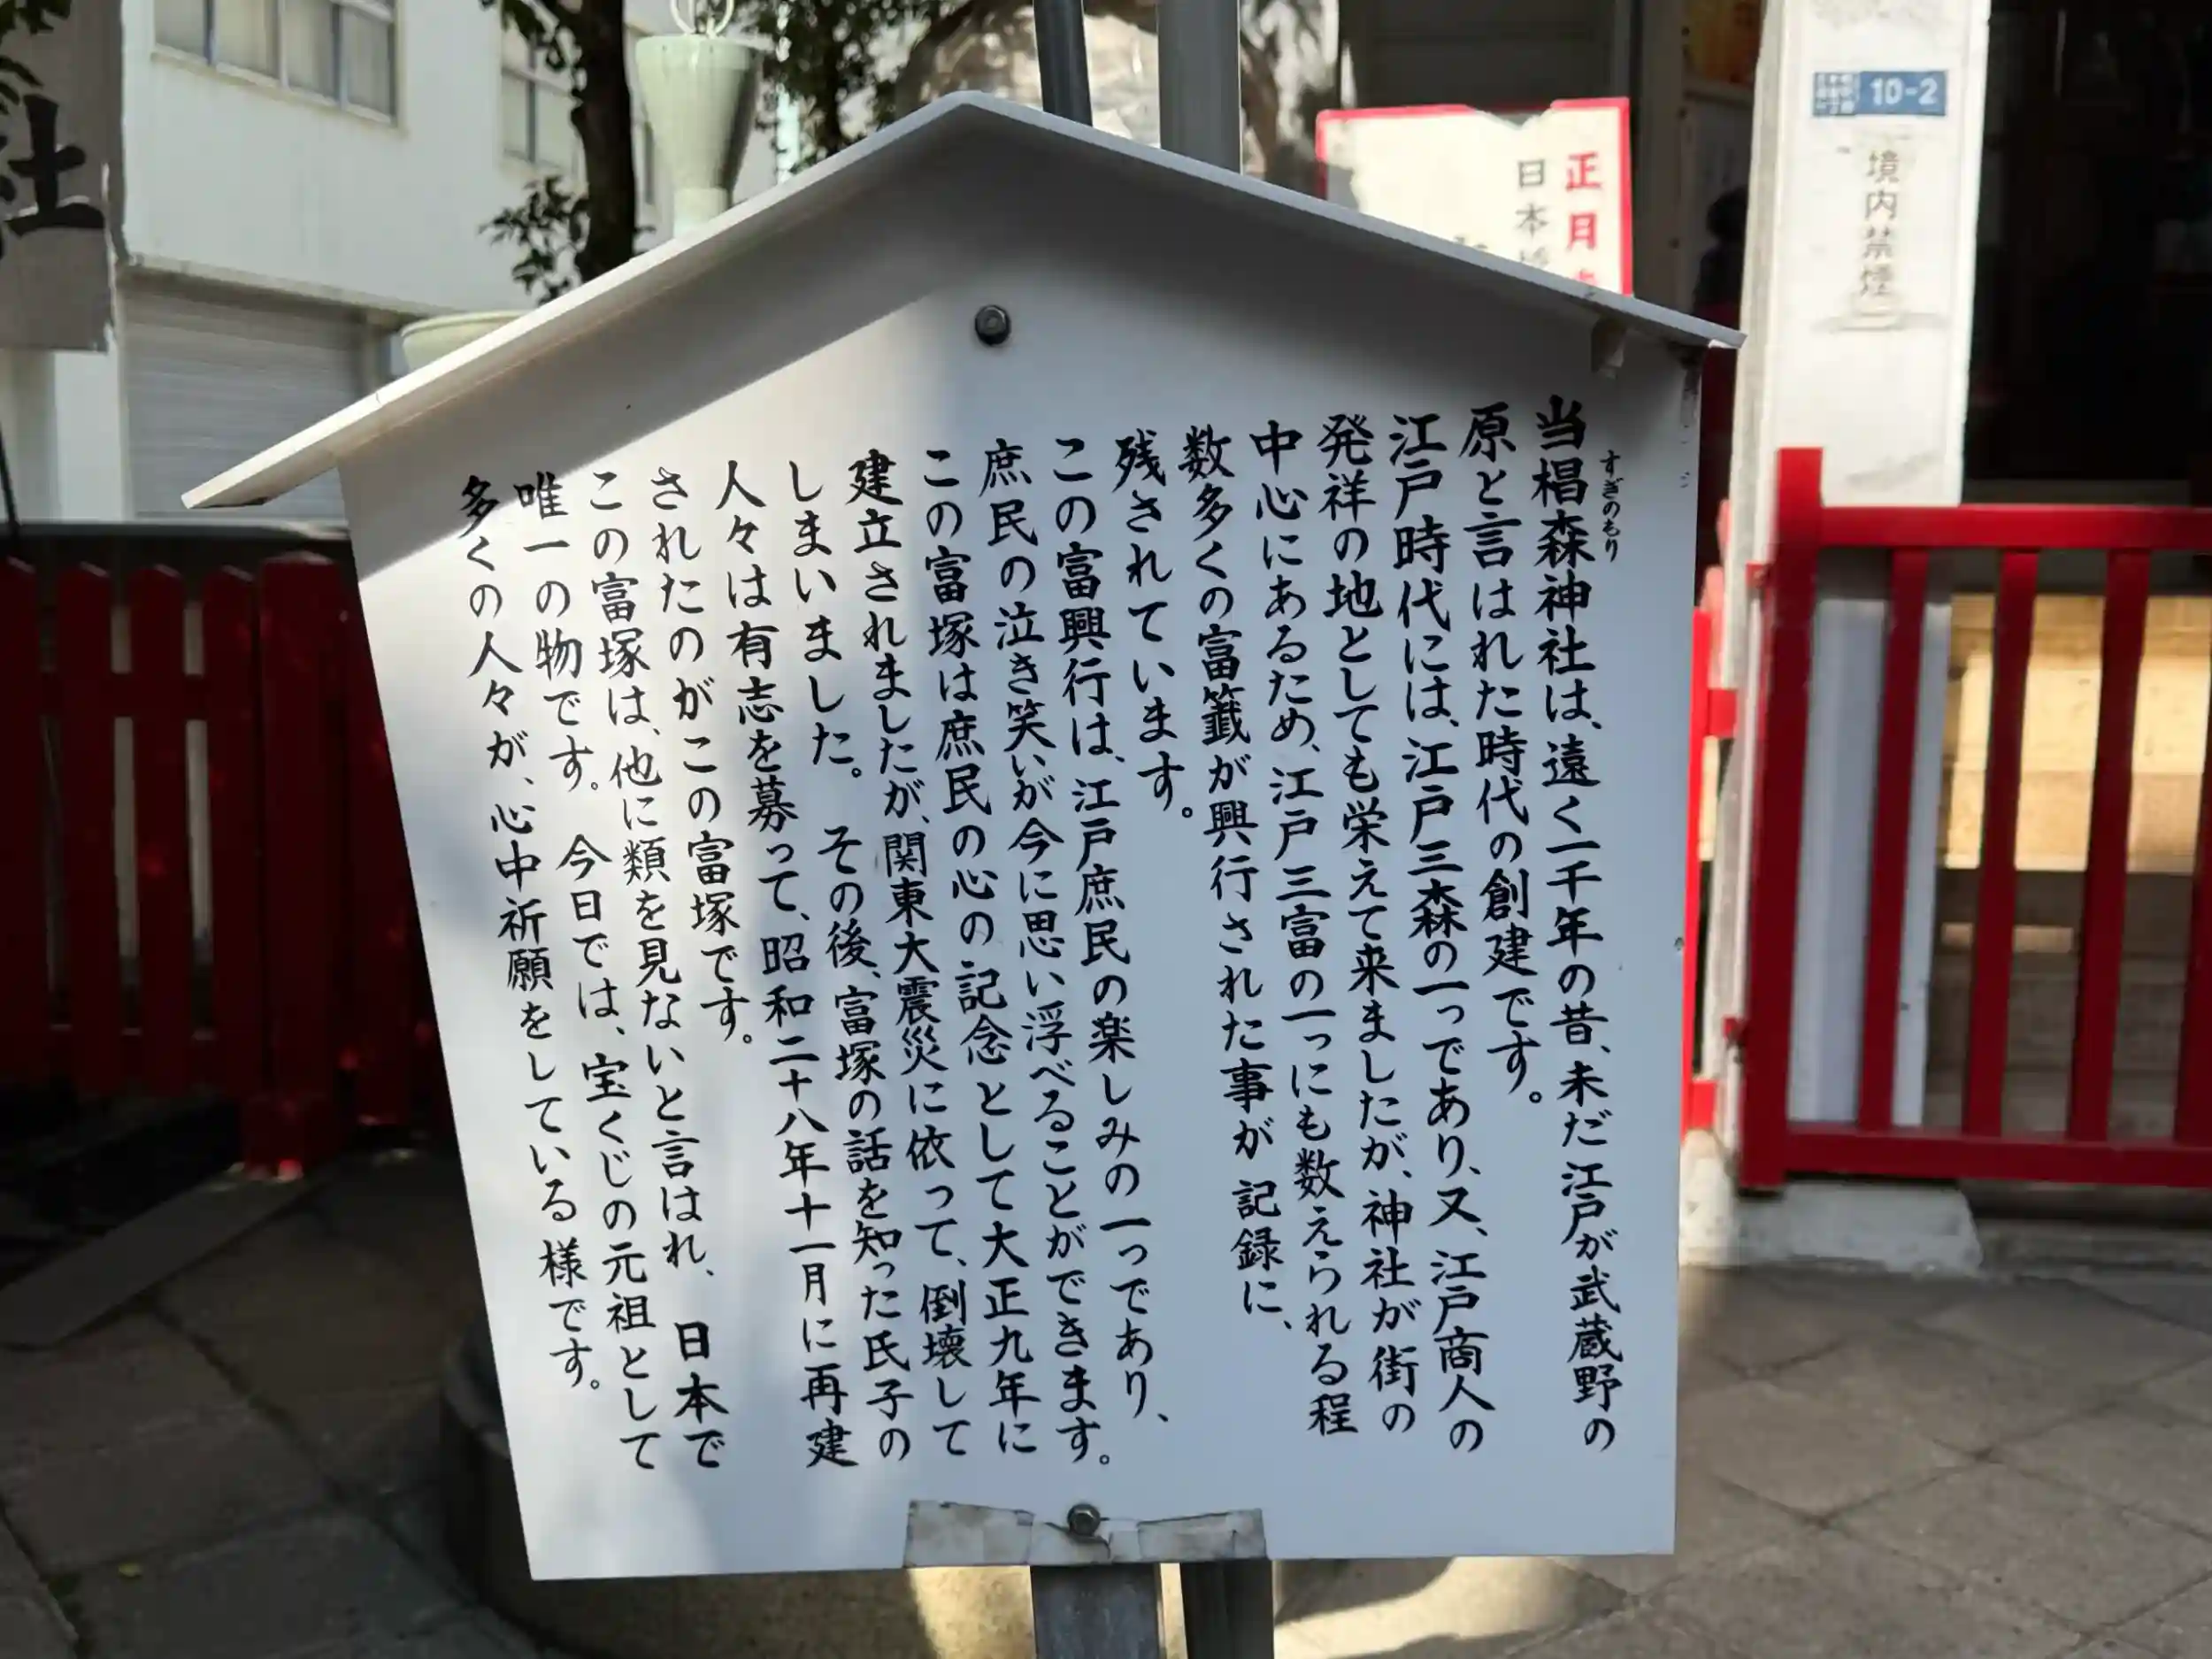 当椙森神社は、遠く一千年の昔、未だ江戸が武蔵野の
すぎのもり
原と言はれた時代の創建です。
江戸時代には、江戸三森の一つであり、又、江戸商人の
発祥の地としても栄えて来ましたが、神社が街の
中心にあるため、江戸三富の一つにも数えられる程
数多くの富籤が興行された事が記録に、
残されています。
この富興行は、江戸庶民の楽しみの一つであり、
庶民の泣き笑いが今に思い浮べることができます。
この富塚は庶民の心の記念として大正九年に
建立されましたが、関東大震災に依って、倒壊して
しまいました。その後、富塚の話を知った氏子の
人々は有志を募って、昭和二十八年十一月に再建
されたのがこの富塚です。
この富塚は、他に類を見ないと言はれ、日本で
唯一の物です。今日では、宝くじの元祖として
多くの人々が、心中祈願をしている様です。
正月
日本
10-2
境内禁煙
社